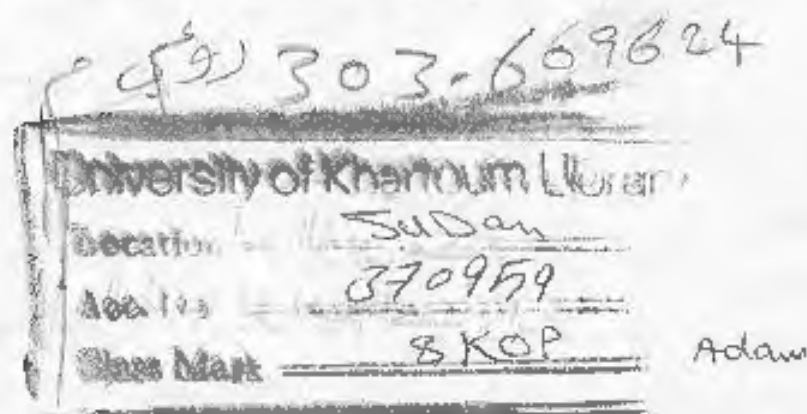 303.669624
University of Khartoum Library
Location Sudan
Acc. No 370959
Class Mark 8 KOP
Adam